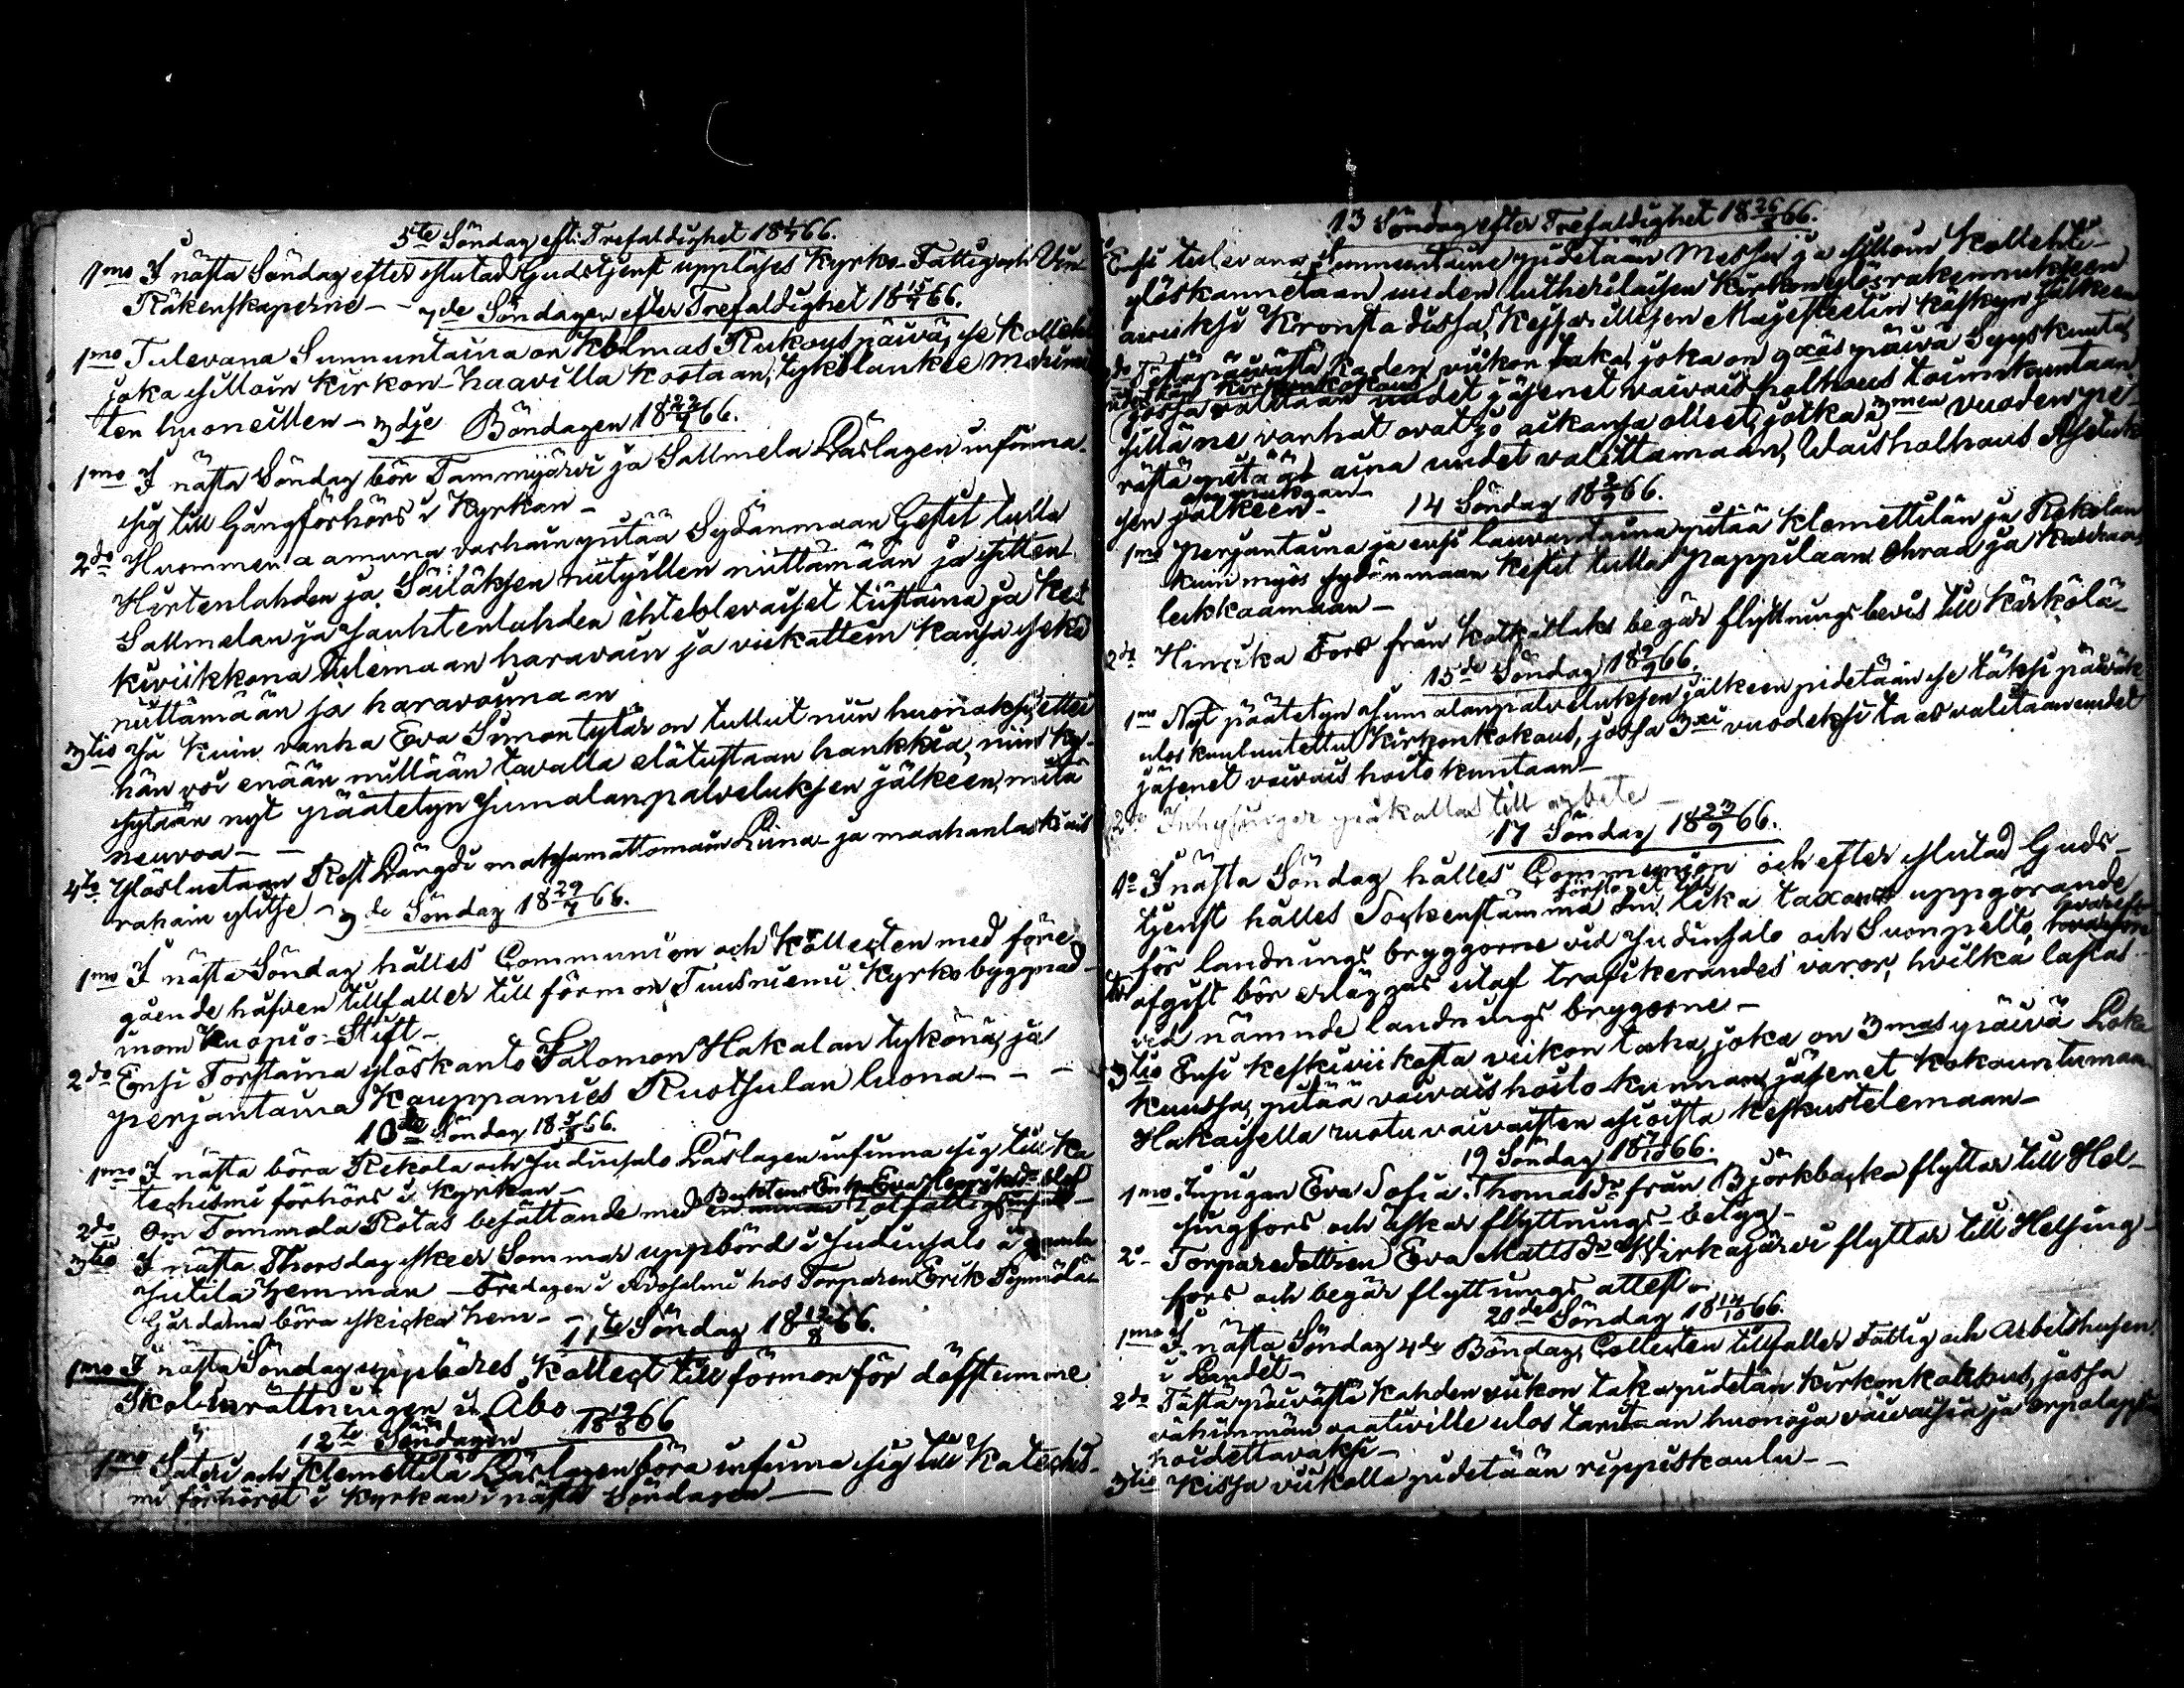 5te Söndag eft: Trefaldighet 18 1/7 66.
1mo I nästa Söndag efter slutad Gudstjenst uppläses Kyrko- Fattig och Vin-
Räkenskaperne -
7de Söndagen efter Trefaldighet 18 15/7 66.
1mo Tulevana Sunnuntaina on kolmas Rukouspäivä, se Kollehti
joka silloin Kirkon-haavilla kootaan, tykölankee
ten huoneillen -
3dje Böndagen 18 22/7 66.
1mo I nästa Söndag bör Tammijärvi ja Sallmela Läslagen infinna
sig till Gångförhörs i Kyrkan -
2do Huomenna aamuna varhain pitää Sydänmaan Gestit tulla
Hirtenlahden ja Säiläksen niityillen niittämään ja sitten
Sallmelan ja Jauhtenlahden ihteblevaiset tiistaina ja kes
kiviikkona tulemaan haravain ja viikattein kansa sekä
niittämään ja haravoimaan
3tio Ja kuin vanha Eva Simontytär on tullut niin huonoksi, ettei
hän voi enään millään tavalla elätystään hankkia, niin ky-
sytään nyt päätetyn Jumalanpalveluksen jälkeen, mitä
neuvoa -
4to Ylösluetaan Rest Längdi matsamattomain Liina- ja maahanlaskiais
rahain ylitse -
9de Söndag 18 29/7 66.
1mo I nästa Söndag hålles Communion och Kollecten med före
gående håfven tillfaller till förmon Tuusniemi Kyrkobyggnad
inom Kuopio-Stift -
2do Ensi Torstaina ylöskanto Salomon Hakalan tykönä, ja
perjantaina Kauppamies Ruotsulan luona - - -
10de Söndag 18 5/8 66.
1mo I nästa böra Rekola och Judinsalo Läslagen infinna sig till Ka
techismi förhörs i Kyrkan -
2do Om Tommola Rotas besättande med Enk: Eva Henriksd:
3tio I nästa Thorsdag sker Sommar uppbörd i Judinsalo å gamla
Jutila hemman - Fredagen i Arvosalmi hos Torparen Erik
Gårdarna böra skicka hem -
11te Söndag 18 12/8 66.
1mo I nästa Söndag uppbäres Kollect till förmon för döfstumme
Skol-inrättningen i Åbo
12te Söndagen 18 19/8 66
1mo Säteri och Klemettilä Läslagen böra infinna sig till Katechis-
mi förhöret i Kyrkan i nästa Söndagen -
13 Söndag efter Trefaldighet 18 26/8 66.
Ensi tulevana Sunnuntaina pidetään Messu ja silloin Kollehti
ylöskannetaan uuden lutherilaisen Kirkon ylösrakennukseen
avuksi Kronstadissa, Keisarillisen Majesteetin käskyn jälkeen
2do Tästäpäivästä kaden viikon taka, joka on 9säs päivä Syyskuuta,
pidetään Kirkonkokous
jossa valitaan uudet jäsenet vaivaisholhous toimikuntaan
sillä ne vanhat ovat jo aikansa olleet, jotka 3men vuoden pe-
rästä pitää aina uudet valittamaan, Vaisholhous Asetuk
sen jälkeen -
14 Söndag 18 2/9 66.
1mo Perjantaina ja ensi lauvantaina pitää Klemettilän ja Rekolan
kuin myös sydänmaan Kestit tulla Pappilaan ohraa ja kauraa
leikkaamaan -
2do Hinrika Fors från Kotkatlaks begär flyttningsbevis till Kärkölä
15de Söndag 18 9/9 66.
1mo Nyt päätetyn Jumalanpalveluksen jälkeen pidetään se täksi päiväksi
uloskuuluutettu Kirkonkokous, jossa 3ksi vuodeksi taas valitaan uudet
jäsenet vaivais hoitokuntaan -
2do Inhysingar påkallas till arbete -
17 Söndag 18 23/9 66.
1o I nästa Söndag hålles Communion och efter slutad Guds-
tjenst hålles Sockenstämma förslaget till taxans uppgörande
för landnings bryggorne vid Judinsalo och Suonpelto, hvarefter
afgift bör erläggas utaf trafikerandes varor, hvilka lastas
vid nämnde landnings bryggorne -
3tio Ensi keskiviikosta viikon taka, joka on 3mas päivä Loka
kuussa, pitää vaivaishoito-kunnan jäsenet kokountumaan
Hakaisella ruotuvaivaisten asioista keskustelemaan -
19 Söndag 18 7/10 66.
1mo Pigan Eva Sofia Thomasdr från Björkbacka flyttar till Hel-
singfors och äskar flyttnings-betyg -
2o Torparedottren Eva Mattsdr Virkajärvi flyttar till Helsing-
fors och begär flyttnings attest -
20de Söndag 18 14/10 66.
1mo I nästa Söndag 4de Böndag, Collecten tillfaller Fattig och Arbetshusen
i Landet -
2do Tästäpäivästä kahden viikon taka pidetän kirkonkokous, jossa
vähimmän vaativille ulos tarjotaan huonoja vaivaisia ja orpolapsia
hoidettavaksi -
3tio Kissa viikolla pidetään rippiskoulu -